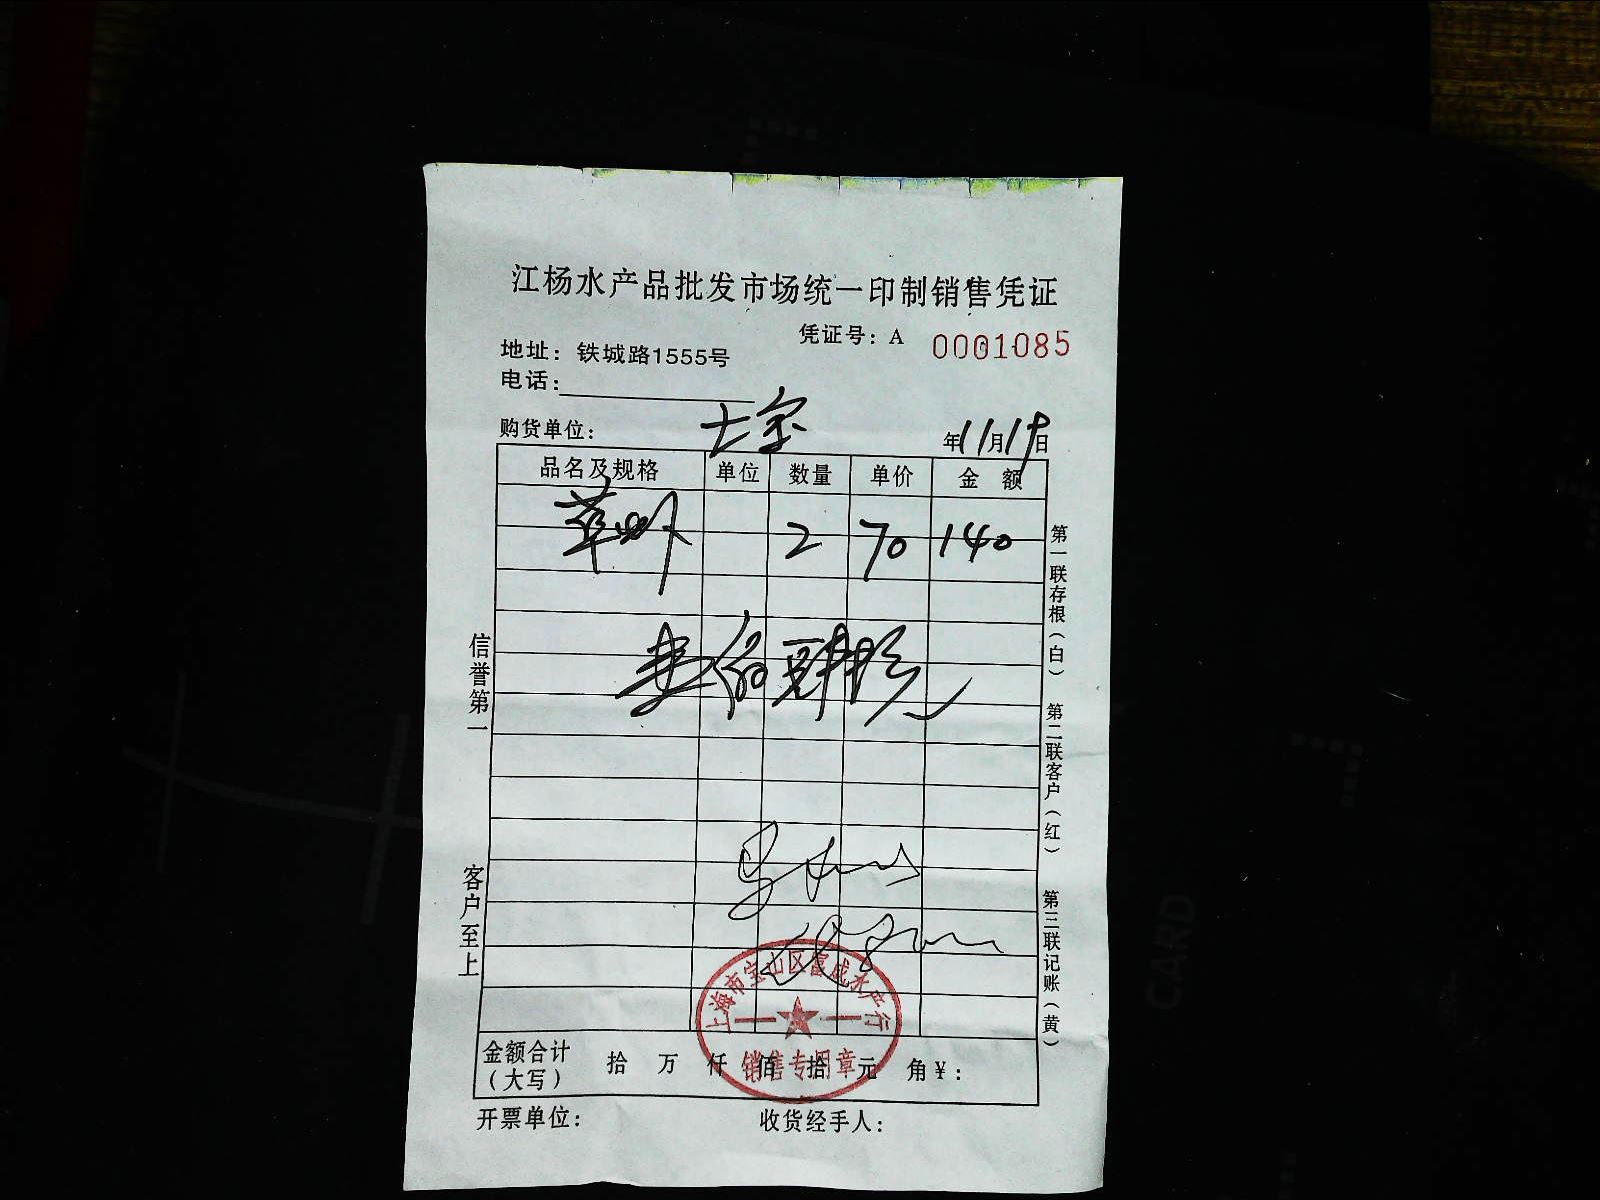 江杨水产品批发市场统一印制销售凭证
凭证号：A 0001085
地址：铁城路1555号
电话：
购货单位： 七宝 年11月19日
品名及规格 单位 数量 单价 金 额
2 70 140
信誉第一
客户至上
第一联存根（白） 第二联客户（红） 第三联记账（黄）
上海市宝山区富成水产行
销售专用章
金额合计（大写） 拾 万 仟 佰 拾 元 角 ¥：
开票单位： 收货经手人：